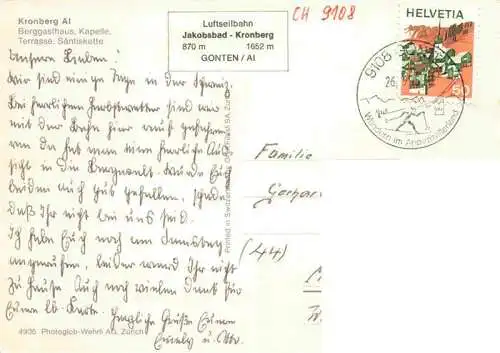 Kronberg AI
Berggasthaus, Kapelle,
Terrasse, Säntiskette
Luftseilbahn
Jakobsbad - Kronberg
870 m 1652 m
GONTEN / AI
CH 9108
HELVETIA
50
9108
26.
Wandern im Appenzellerland
Unsere Lieben!
Wir sind einige Tage in der Schweiz.
Bei herrlichem Herbstwetter sind wir
mit der Bahn hier rauf gefahren
von da hat man eine herrliche Aus-
sicht in die Bergwelt. Würde Euch
beiden auch gut gefallen, schade
daß Ihr nicht bei uns seid.
Ich habe Euch noch am Samstag
angerufen, leider ward Ihr nicht
zu Hause. Auch noch vielen Dank für
Eure lb. Karte. Herzliche Grüße Euere
u.
Familie
Gerhar
(44)
Printed in Switzerland
4935 Photoglob-Wehrli AG, Zürich